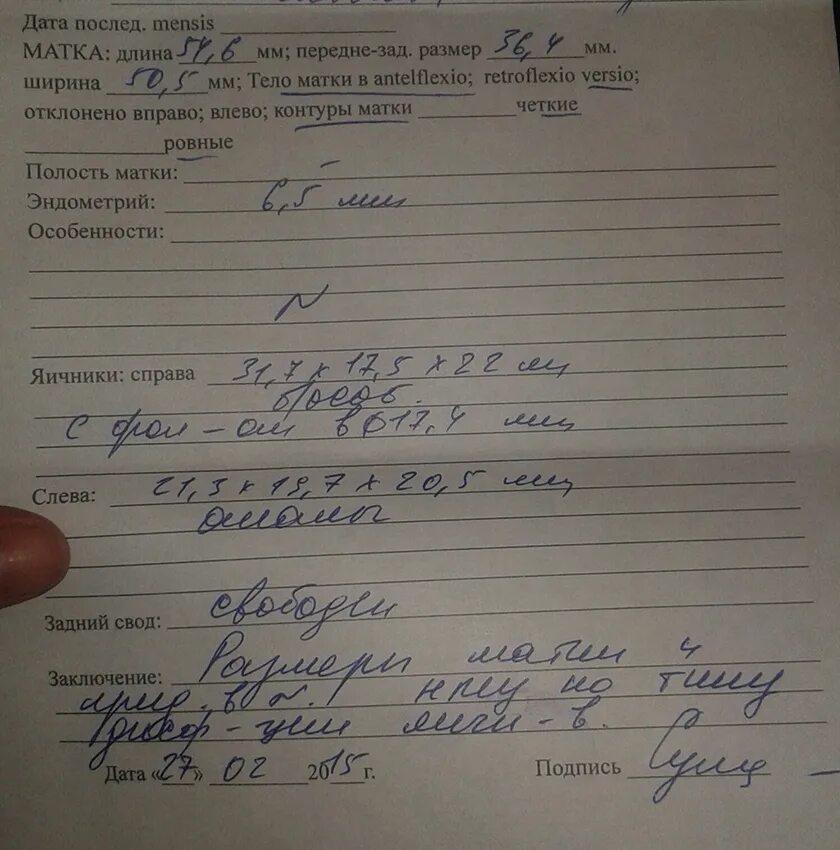 Дата послед. mensis
МАТКА: длина 51,6 мм; передне-зад. размер 36,4 мм.
ширина 50,5 мм; Тело матки в antelflexio; retroflexio versio;
отклонено вправо; влево; контуры матки четкие
ровные
Полость матки: –
Эндометрий: 6,5 мм
Особенности:
N
Яичники: справа 31,7 х 17,5 х 22 мм
с фол-ом в ф 17,4 мм
Слева: 21,3 х 19,7 х 20,5 мм
Задний свод: свободен
Заключение: Размеры матки и
прид. в N. НМЦ по типу
дисф-ции яични-в.
Дата «27» 02 2015 г. Подпись